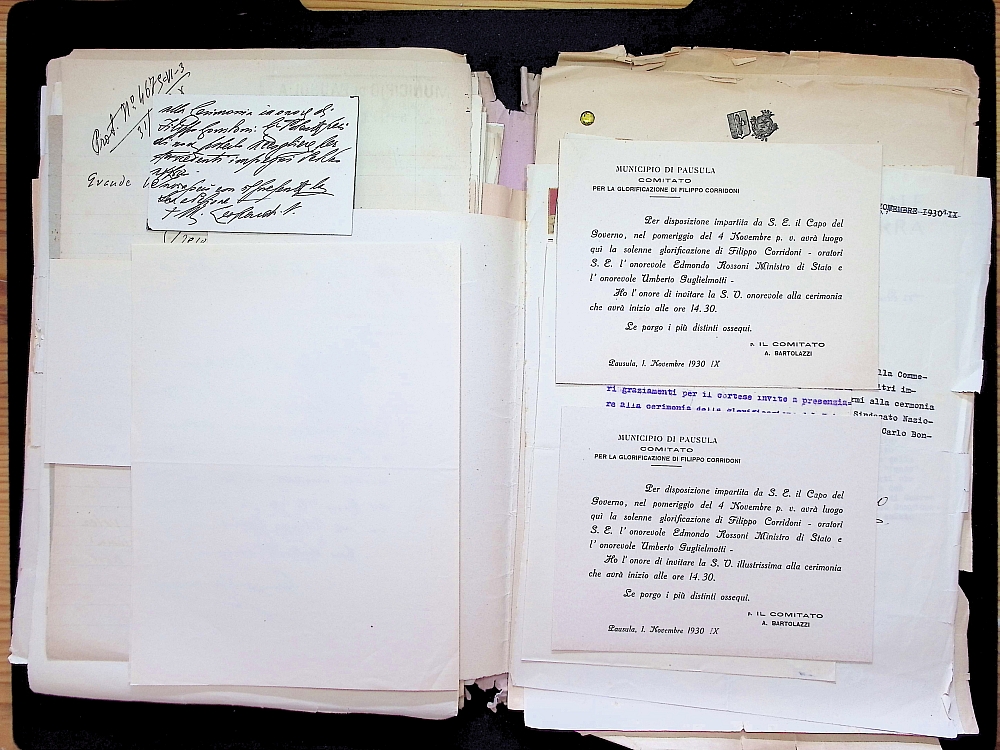 Prot. Nº 4679-VI-3
alla Cerimonia in onore di
Filippo Corridoni.
MUNICIPIO DI PAUSULA
COMITATO
PER LA GLORIFICAZIONE DI FILIPPO CORRIDONI
Per disposizione impartita da S. E. il Capo del
Governo, nel pomeriggio del 4 Novembre p. v. avrà luogo
quì la solenne glorificazione di Filippo Corridoni - oratori
S. E. l' onorevole Edmondo Rossoni Ministro di Stato e
l' onorevole Umberto Guglielmotti -
Ho l' onore di invitare la S. V. onorevole alla cerimonia
che avrà inizio alle ore 14.30.
Le porgo i più distinti ossequi.
P. IL COMITATO
A. BARTOLAZZI
Pausula, 1. Novembre 1930 IX
NOVEMBRE 1930-IX
lla Comme-
ltri im-
ri graziamenti per il cortese invito a presenzia-
rmi alla cermonia
re alla cerimonia della glorificazione
Sindacato Nazio-
Carlo Bon-
MUNICIPIO DI PAUSULA
COMITATO
PER LA GLORIFICAZIONE DI FILIPPO CORRIDONI
Per disposizione impartita da S. E. il Capo del
Governo, nel pomeriggio del 4 Novembre p. v. avrà luogo
quì la solenne glorificazione di Filippo Corridoni - oratori
S. E. l' onorevole Edmondo Rossoni Ministro di Stato e
l' onorevole Umberto Guglielmotti -
Ho l' onore di invitare la S. V. illustrissima alla cerimonia
che avrà inizio alle ore 14.30.
Le porgo i più distinti ossequi.
P. IL COMITATO
A. BARTOLAZZI
Pausula, 1. Novembre 1930 IX